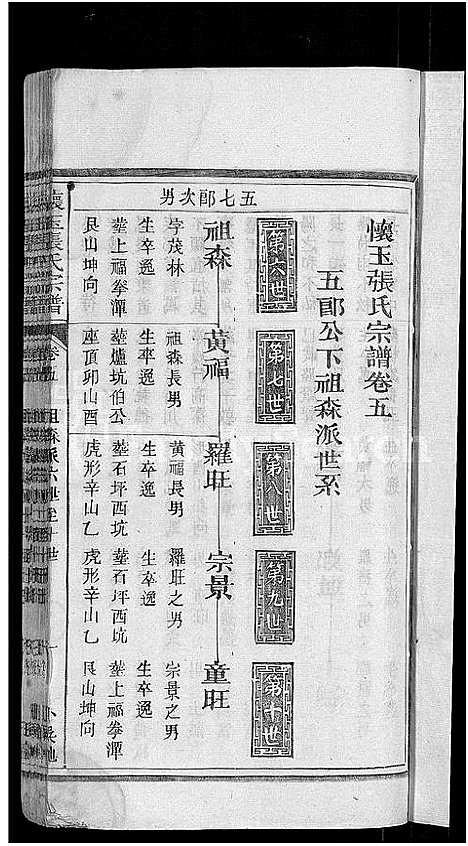 懷玉張氏宗譜卷五
五郎公下祖森派世系
第六世
第七世
第八世
第九世
第十世
五七郎次男
祖森
字茂林
生卒逸
塟上福拳潭
艮山坤向
黃福
祖森長男
生卒逸
塟爐坑伯公
座頂卯山酉
羅旺
黃福長男
生卒逸
塟石坪西坑
虎形辛山乙
宗景
羅旺之男
生卒逸
塟石坪西坑
虎形辛山乙
童旺
宗景之男
生卒逸
塟上福拳潭
艮山坤向
懷玉張氏宗譜
卷五
祖森派六世至十世